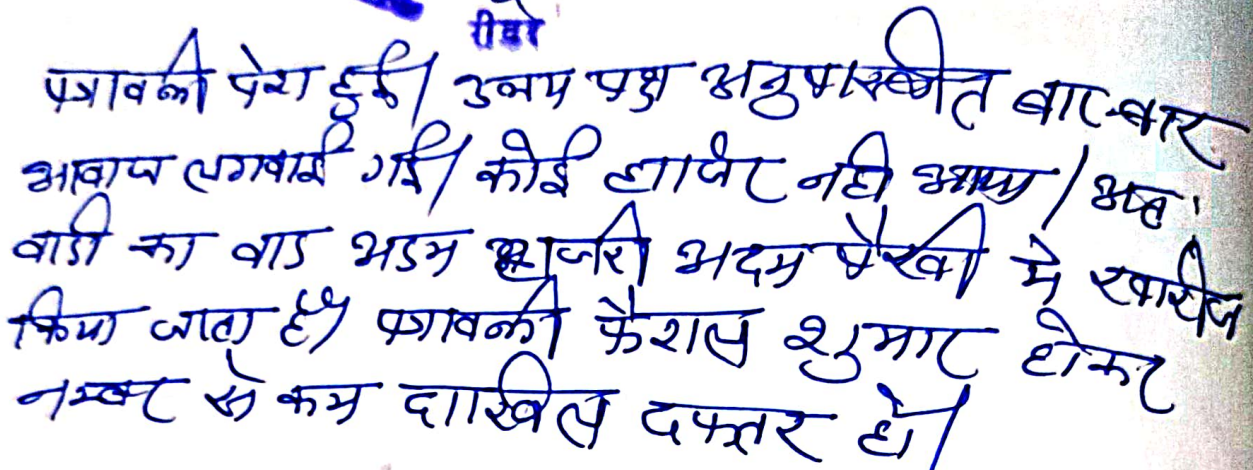 रीडर
पत्रावली पेश हुई। उभय पक्ष अनुपास्थीत बार-बार
आवाज लगवाई गई। कोई हाजिर नही आया। अतः
वादी का वाद अदम हाजरी अदम पैरवी मे खारीज
किया जाता है। पत्रावली फैशल शुमार होकर
नम्बर से कम दाखिल दफ्तर हो।